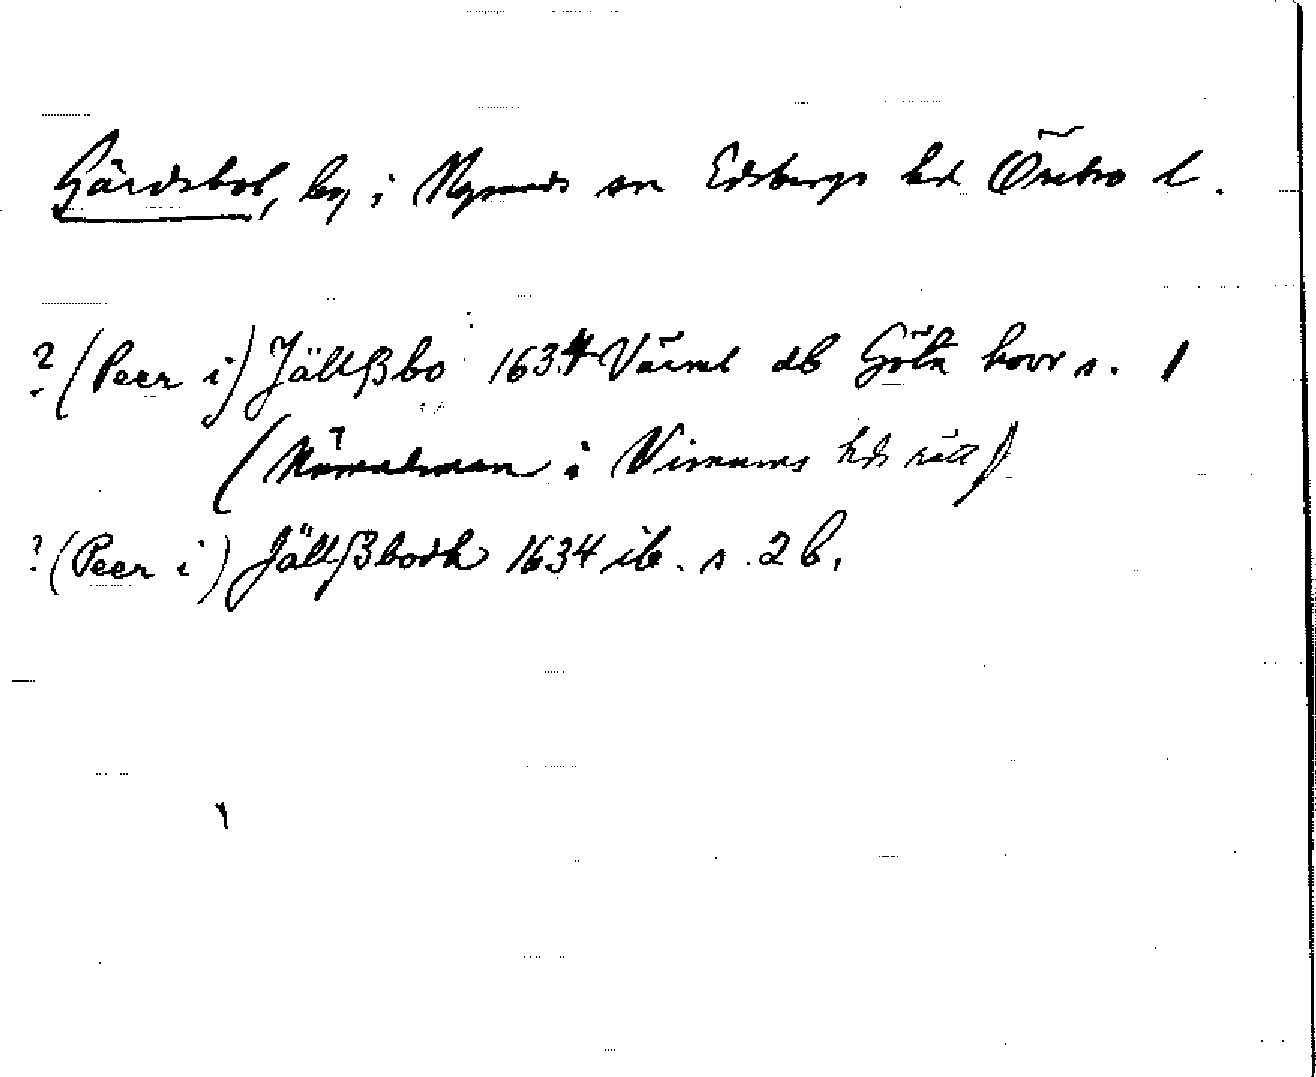 Gärdsbol, by i Nysunds sn Edsbergs hd Örebro l.
? (Peer i) Jällßbo 1634 Värml db Göta hovr s. 1
( i Visnums hds rätt)
? (Peer i) Jällßbodh 1634 ib. s. 2 b.